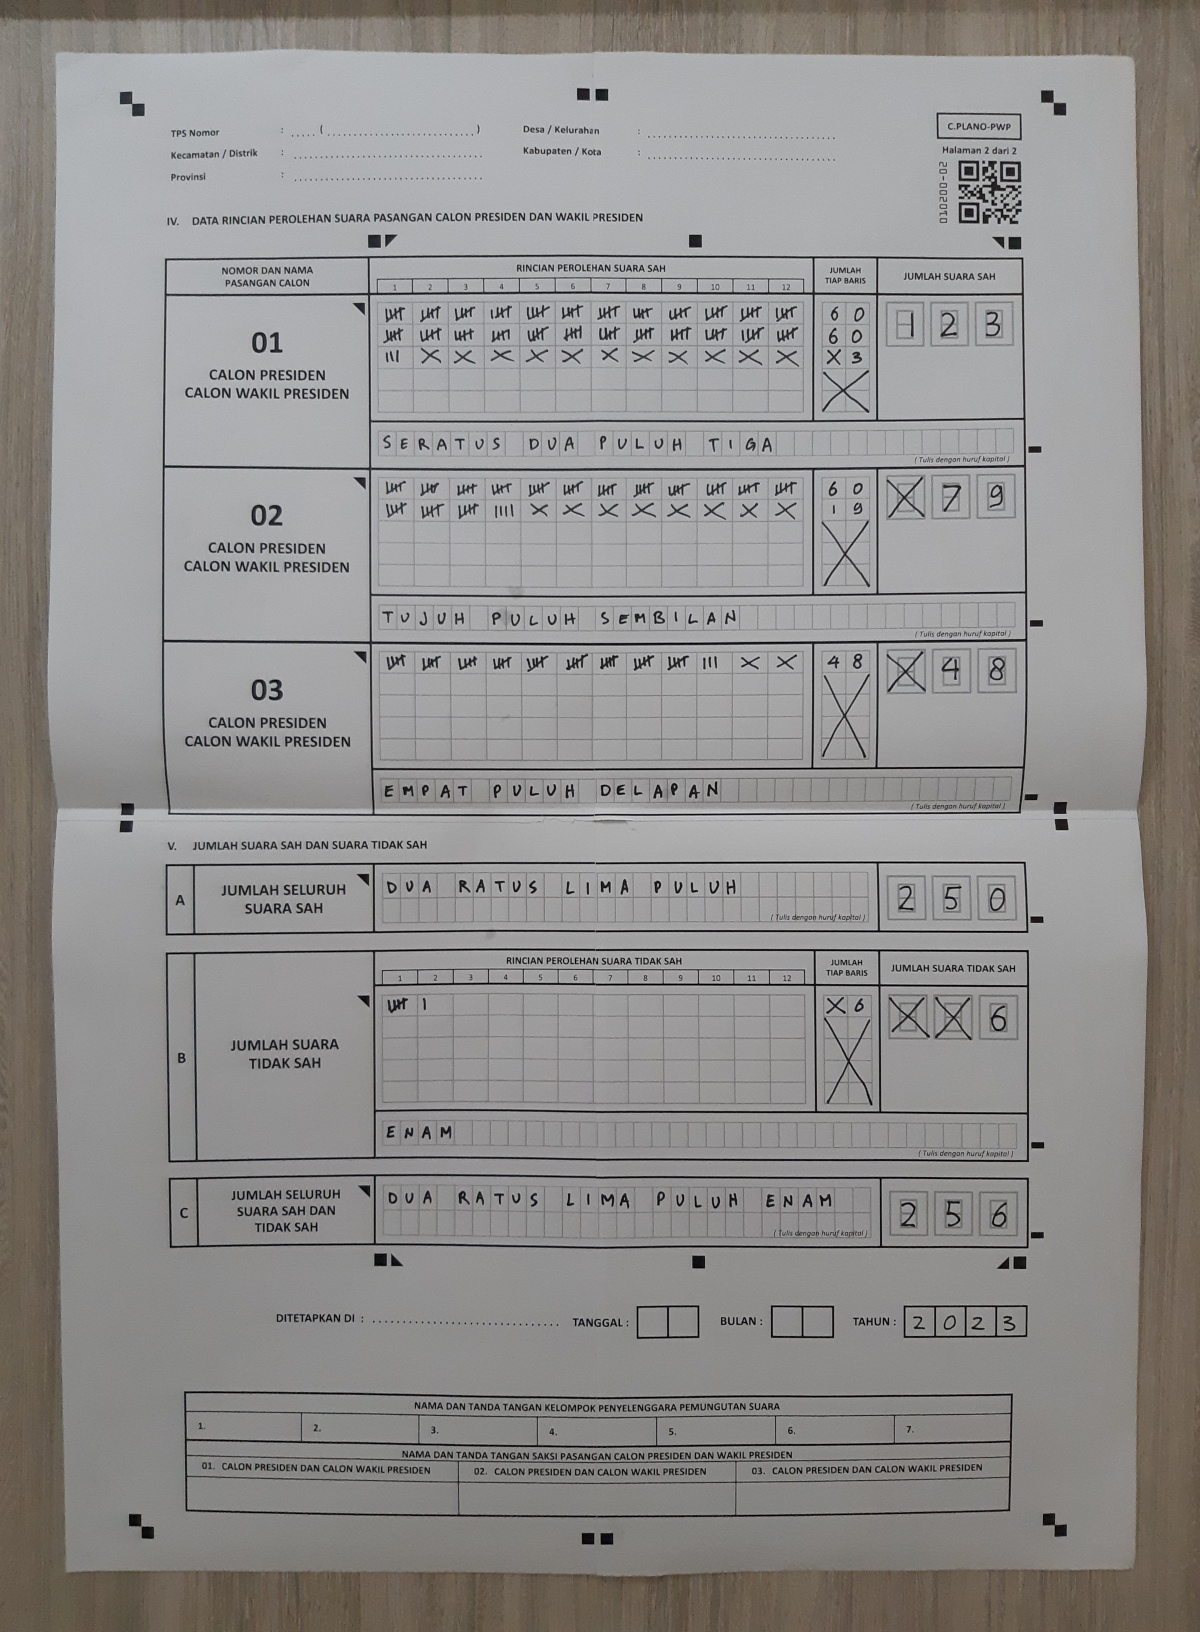 TPS Nomor : ..... ( ............................ )
Kecamatan / Distrik : ....................................
Provinsi : ....................................
Desa / Kelurahan : ....................................
Kabupaten / Kota : ....................................
C.PLANO-PWP
Halaman 2 dari 2
20-002010
IV. DATA RINCIAN PEROLEHAN SUARA PASANGAN CALON PRESIDEN DAN WAKIL PRESIDEN
NOMOR DAN NAMA
PASANGAN CALON
RINCIAN PEROLEHAN SUARA SAH
1 2 3 4 5 6 7 8 9 10 11 12
JUMLAH
TIAP BARIS
JUMLAH SUARA SAH
01
CALON PRESIDEN
CALON WAKIL PRESIDEN
60
60
X3
123
SERATUS DUA PULUH TIGA
( Tulis dengan huruf kapital )
02
CALON PRESIDEN
CALON WAKIL PRESIDEN
60
19
X79
TUJUH PULUH SEMBILAN
( Tulis dengan huruf kapital )
03
CALON PRESIDEN
CALON WAKIL PRESIDEN
48
X48
EMPAT PULUH DELAPAN
( Tulis dengan huruf kapital )
V. JUMLAH SUARA SAH DAN SUARA TIDAK SAH
A
JUMLAH SELURUH
SUARA SAH
DUA RATUS LIMA PULUH
( Tulis dengan huruf kapital )
250
B
JUMLAH SUARA
TIDAK SAH
RINCIAN PEROLEHAN SUARA TIDAK SAH
1 2 3 4 5 6 7 8 9 10 11 12
JUMLAH
TIAP BARIS
JUMLAH SUARA TIDAK SAH
X6
XX6
ENAM
( Tulis dengan huruf kapital )
C
JUMLAH SELURUH
SUARA SAH DAN
TIDAK SAH
DUA RATUS LIMA PULUH ENAM
( Tulis dengan huruf kapital )
256
DITETAPKAN DI : .................................. TANGGAL : BULAN : TAHUN : 2023
NAMA DAN TANDA TANGAN KELOMPOK PENYELENGGARA PEMUNGUTAN SUARA
1. 2. 3. 4. 5. 6. 7.
NAMA DAN TANDA TANGAN SAKSI PASANGAN CALON PRESIDEN DAN WAKIL PRESIDEN
01. CALON PRESIDEN DAN CALON WAKIL PRESIDEN
02. CALON PRESIDEN DAN CALON WAKIL PRESIDEN
03. CALON PRESIDEN DAN CALON WAKIL PRESIDEN